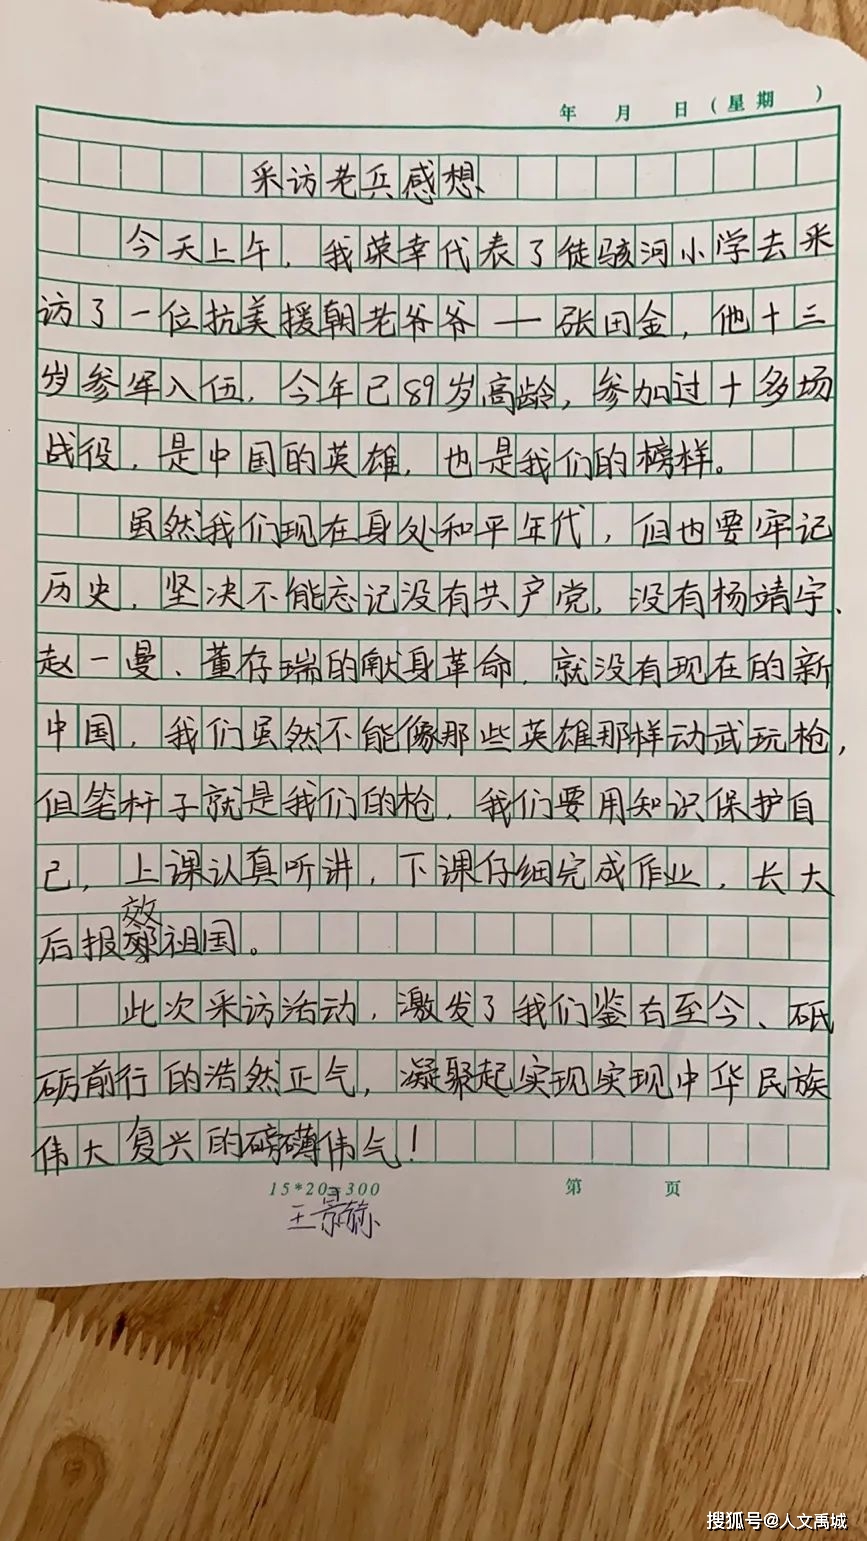 年 月 日（星期 ）
采访老兵感想
今天上午，我荣幸代表了徒骇河小学去采
访了一位抗美援朝老爷爷——张田金，他十三
岁参军入伍，今年已89岁高龄，参加过十多场
战役，是中国的英雄，也是我们的榜样。
虽然我们现在身处和平年代，但也要牢记
历史，坚决不能忘记没有共产党，没有杨靖宇、
赵一曼、董存瑞的献身革命，就没有现在的新
中国，我们虽然不能像那些英雄那样动武玩枪，
但笔杆子就是我们的枪，我们要用知识保护自
己，上课认真听讲，下课仔细完成作业，长大
后报效祖国。
此次采访活动，激发了我们鉴古至今、砥
砺前行的浩然正气，凝聚起实现实现中华民族
伟大复兴的磅礴伟气！
15*20=300 第 页
王
搜狐号@人文禹城